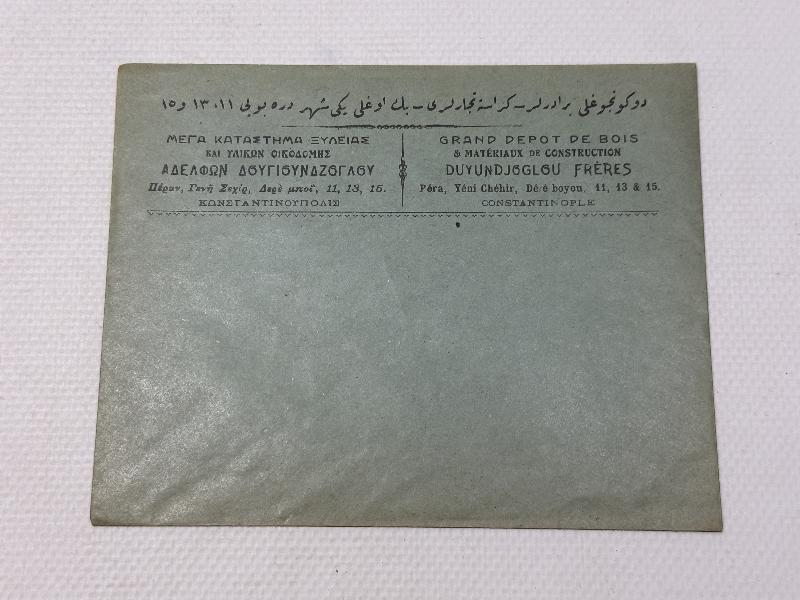 دوكونجوغلى برادرلر - كراسته تجارلرى - بك اوغلى يكى شهر دره بويى ١١، ١٣ و ١٥
ΜΕΓΑ ΚΑΤΑΣΤΗΜΑ ΞΥΛΕΙΑΣ
ΚΑΙ ΥΛΙΚΩΝ ΟΙΚΟΔΟΜΗΣ
ΑΔΕΛΦΩΝ ΔΟΥΓΙΟΥΝΔΖΟΓΛΟΥ
Πέραν, Γενῆ Σεχὶρ, Δερὲ μποΐ, 11, 13, 15.
ΚΩΝΣΤΑΝΤΙΝΟΥΠΟΛΙΣ
GRAND DEPOT DE BOIS
& MATÉRIAUX DE CONSTRUCTION
DUYUNDJOGLOU FRÈRES
Péra, Yéni Chéhir, Déré boyou, 11, 13 & 15.
CONSTANTINOPLE